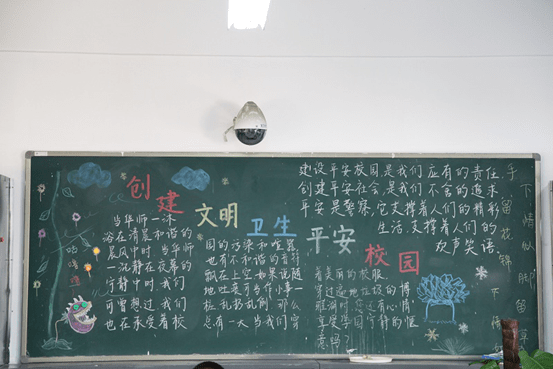 创建
文明
卫生
平安
校园
当华师一沐
浴在清晨和谐的
晨风中时,当华师
一沉静在夜幕的
宁静中时,我们
可曾想过,我们
也在承受着校
园的污染和喧嚣
也有不和谐的音符
飘在上空,如果说随
地吐
乱扔乱
总有一天当我们穿
着美丽的校服
享受学园宁静的惬
意吗?
建设平安校园,是我们应有的责任
创建平安社会,是我们不舍的追求
平安是警察,它支撑着人们的精彩
生活,支撑着人们的
欢声笑语.
手下留情
花似锦
脚下留